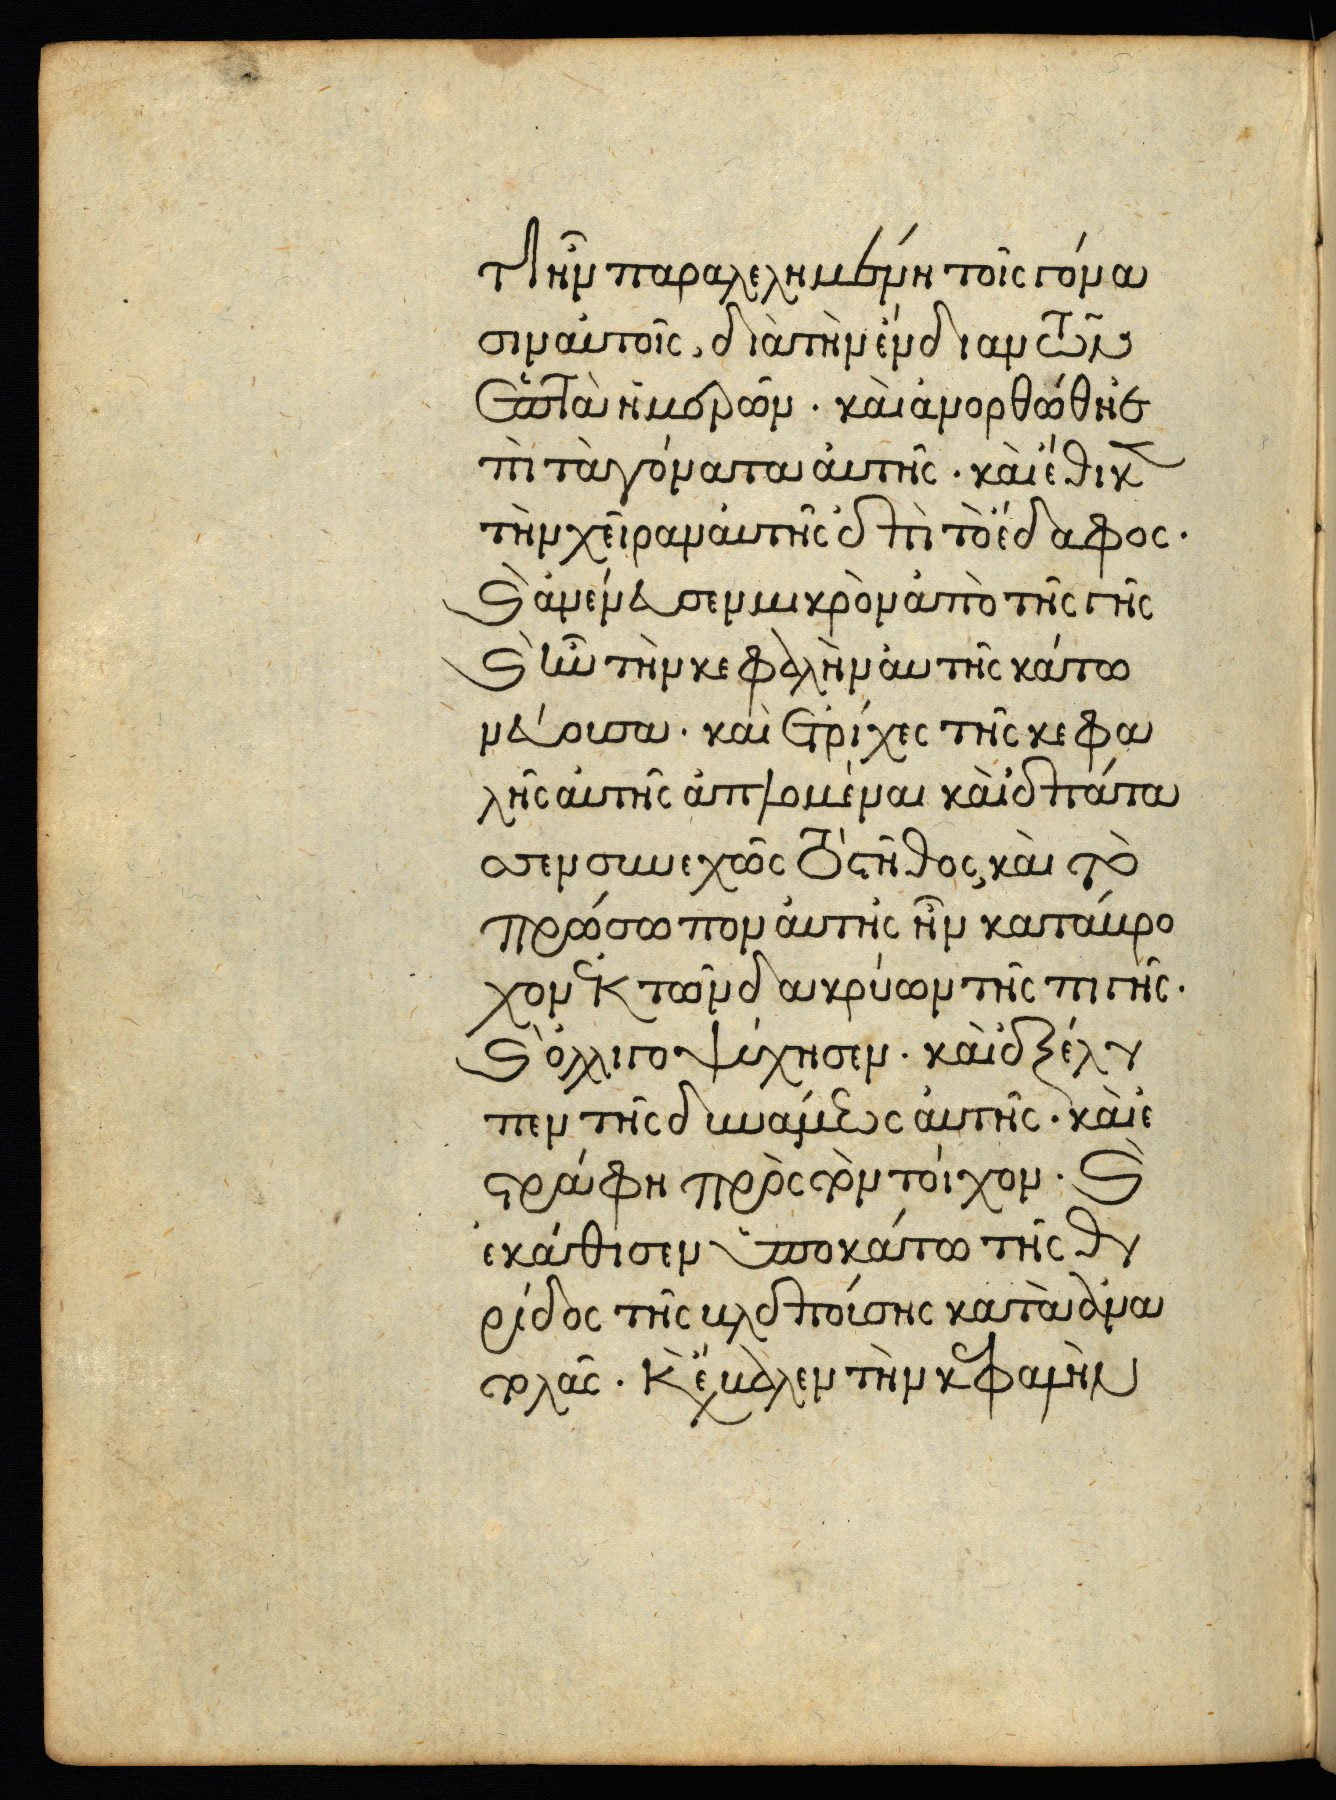 τι ἦν παραλελημένη τοῖς γόνα
σιν αὐτοῖς, διὰ τὴν ἔνδιαν τῶν
ἑπτὰ ἡμερῶν · καὶ ἀνορθώθη ἐ
πὶ τὰ γόνατα αὐτῆς · καὶ ἔθικε
τὴν χεῖραν αὐτῆς ἐπὶ τὸ ἔδαφος ·
καὶ ἀνένευσεν μικρὸν ἀπὸ τῆς γῆς
καὶ ἦν τὴν κεφαλὴν αὐτῆς κάτω
νεύοισα · καὶ ἑ τρίχες τῆς κεφα
λῆς αὐτῆς ἁπλομέναι καὶ ἐπάτα
σεν συνεχῶς τὸ στῆθος, καὶ τὸ
πρόσωπον αὐτῆς ἦν κατάυρο
χον ἐκ τῶν δακρύων τῆς πιγῆς ·
καὶ ὀλλιγοψύχησεν · καὶ ἐξέλυ
πεν τῆς δυνάμεως αὐτῆς · καὶ ἐ
στράφη πρὸς τὸν τοίχον · καὶ
ἐκάθισεν ὑποκάτω τῆς θυ
ρίδος τῆς βλεποίσης κατὰ ἀνα
τολᾶς · καὶ ἔβαλεν τὴν